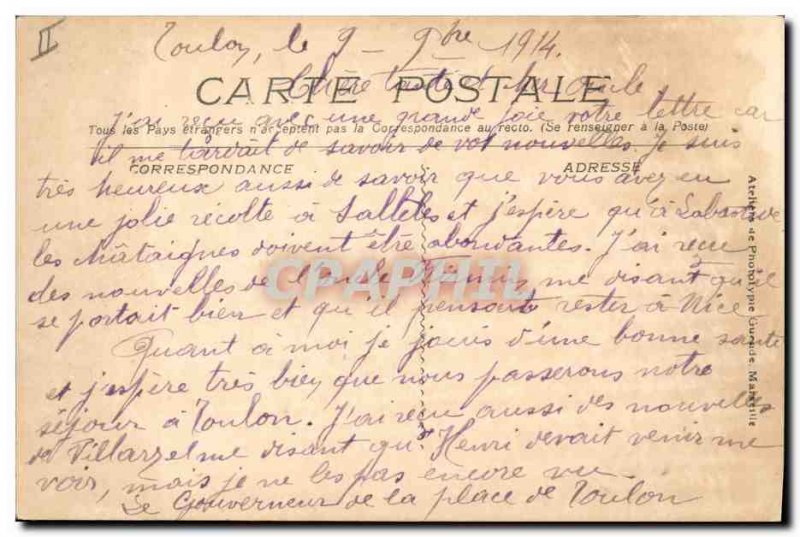 II
Toulon, le 9 - 9bre 1914.
Chère tante et
CARTE POSTALE
J'ai reçu avec une grande joie votre lettre car
Tous les Pays étrangers n'acceptent pas la Correspondance au recto. (Se renseigner à la Poste)
il me tardait de savoir de vos nouvelles. Je suis
CORRESPONDANCE
ADRESSE
très heureux aussi de savoir que vous avez eu
une jolie récolte à Salleles et j'espère qu'à
les châtaignes doivent être abondantes. J'ai reçu
des nouvelles de l'oncle me disant qu'il
CPAPHIL
se portait bien et qu'il pensait rester à Nice
Quant à moi je jouis d'une bonne santé
et j'espère très bien que nous passerons notre
séjour à Toulon. J'ai reçu aussi des nouvelles
de Villarzel me disant que Henri devait venir me
voir, mais je ne l'es pas encore vu.
Le Gouverneur de la place de Toulon
Ateliers de Phototypie Guende, Marseille